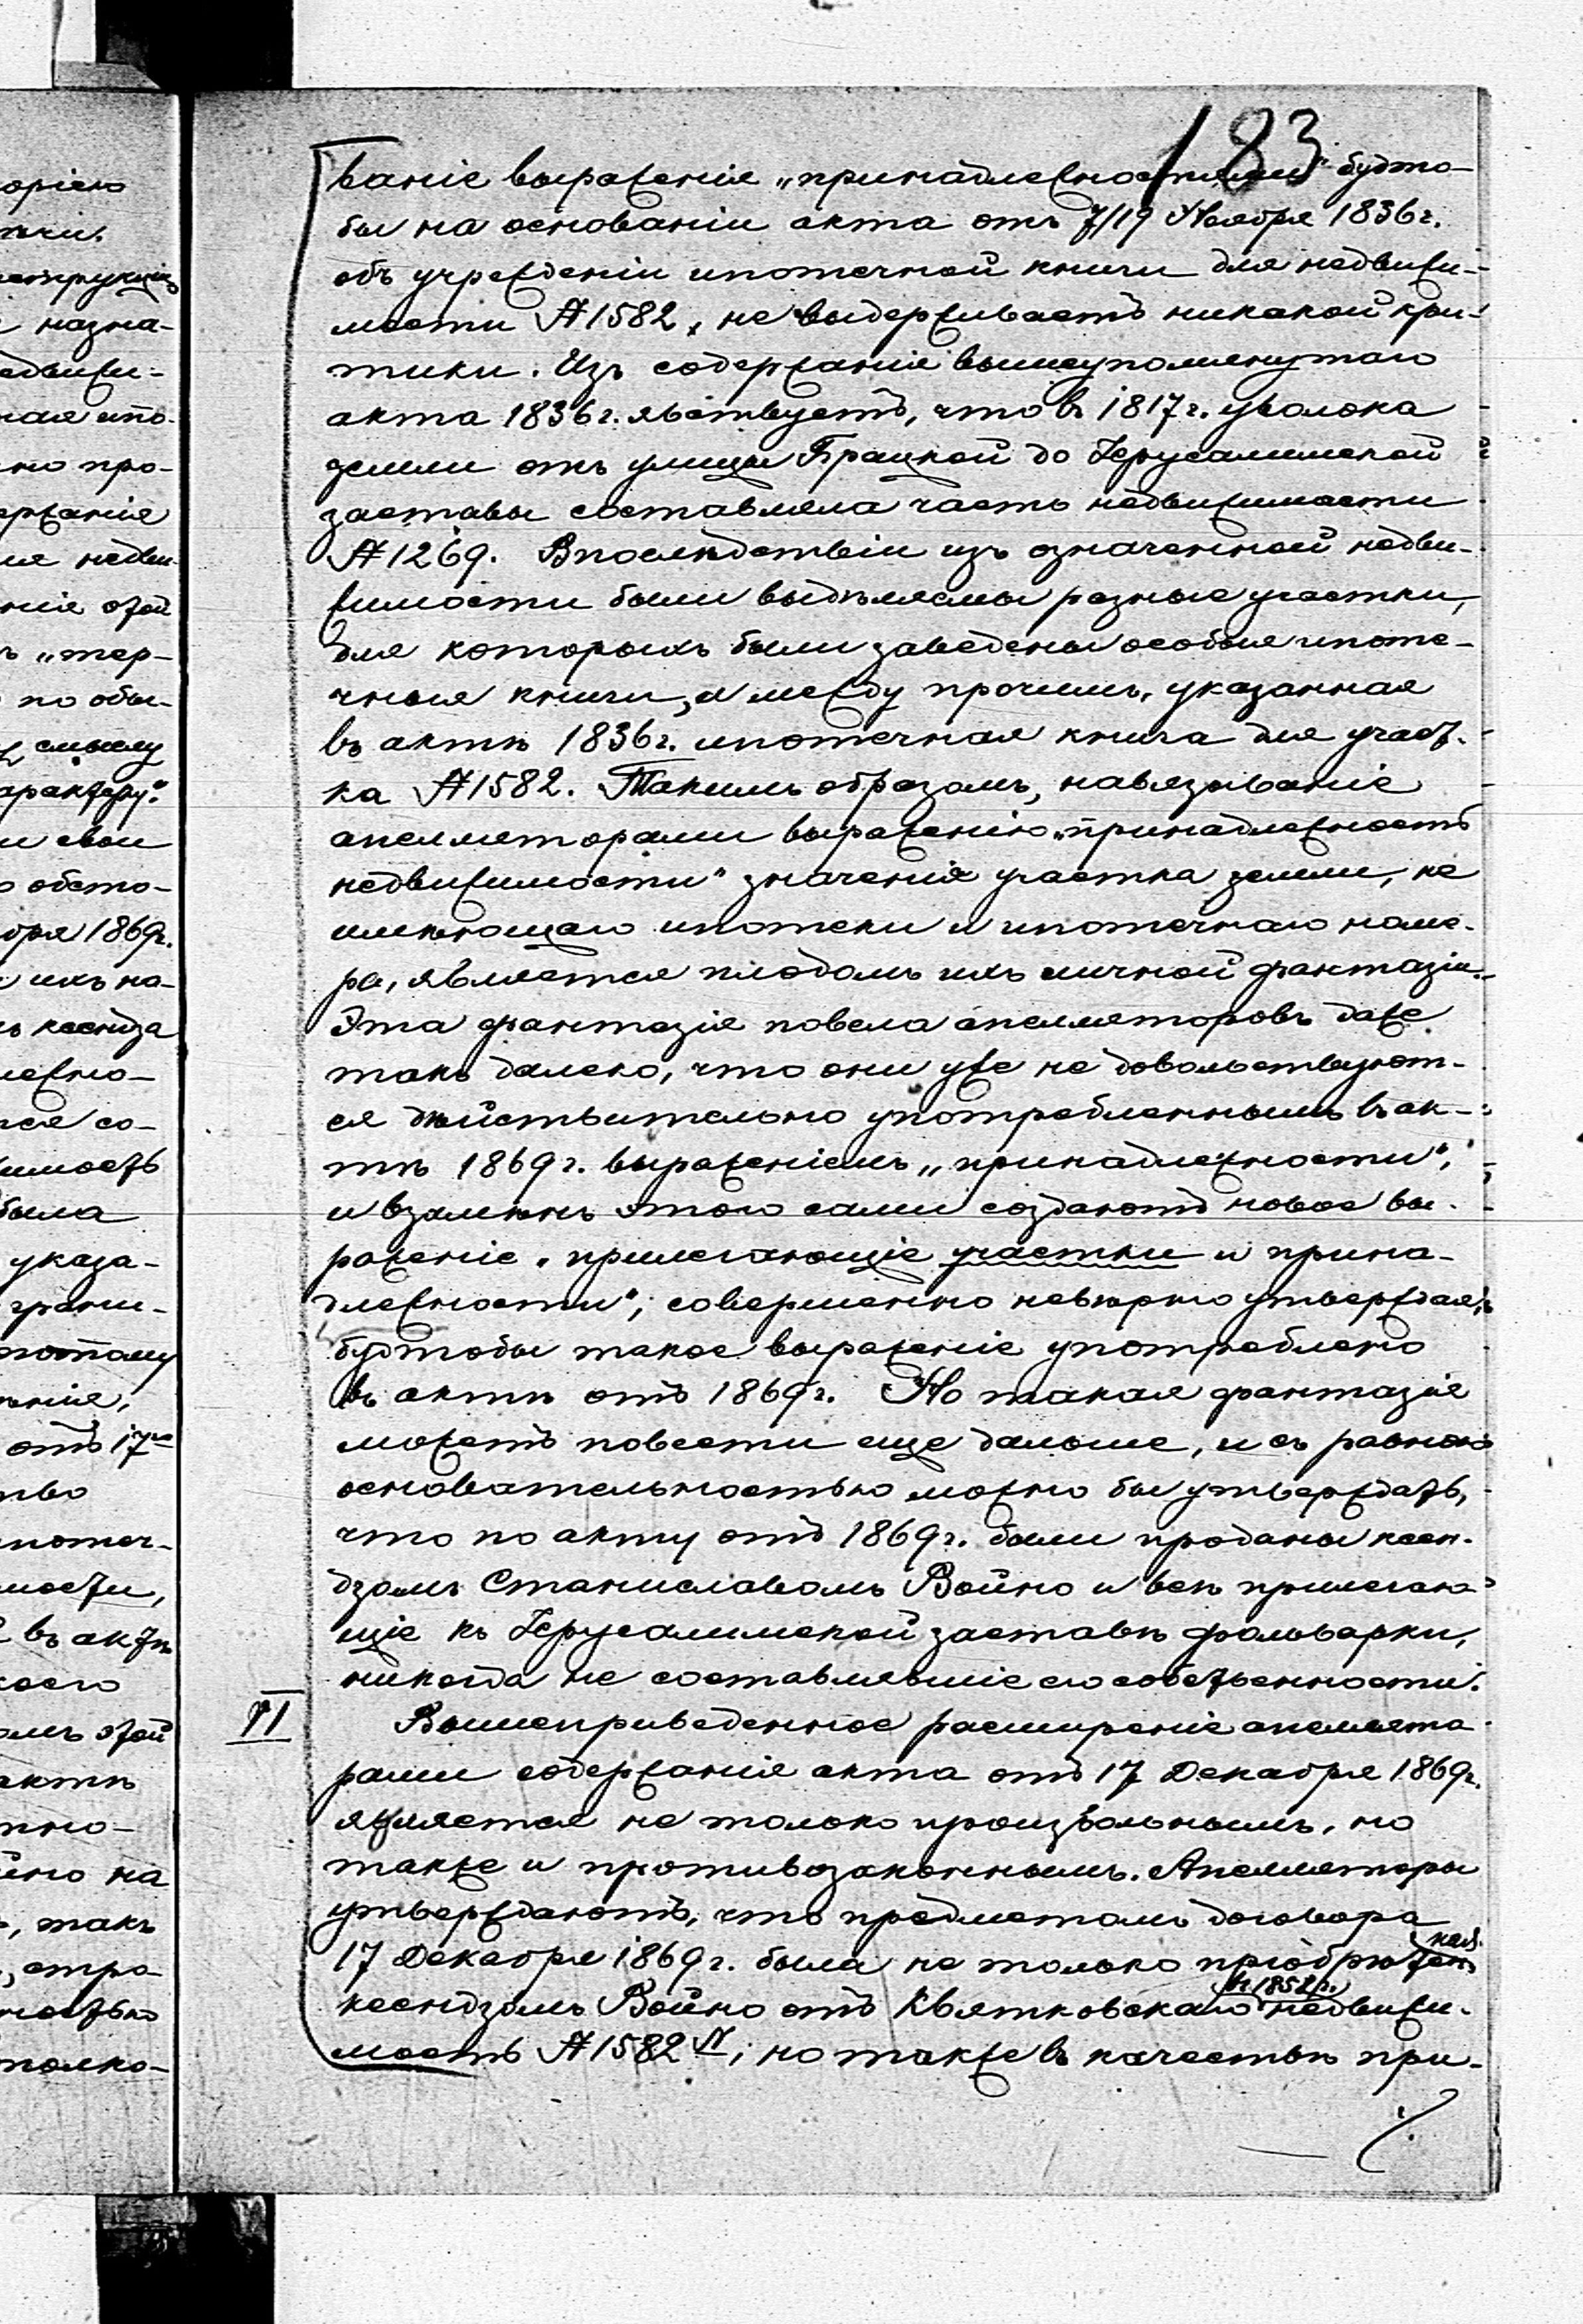 183
ваніе выраженія „принадлежностями" будто-
бы на основаніи акта отъ 7/19 Ноября 1836 г.
объ учрежденіи ипотечной книги для недвижи-
мости № 1582, не выдерживаетъ никакой кри-
тики. Изъ содержанія вышеупомянутаго
акта 1836 г. явствуетъ, что въ 1817 г. уволока
земли отъ улицы Брацкой до Іерусалимской
заставы составляла часть недвижимости
№ 1269. Впослѣдствіи изъ означенной недви-
жимости были выдѣляемы разные участки,
для которыхъ были заведены особыя ипоте-
чныя книги, а между прочимъ, указанная
въ актѣ 1836 г. ипотечная книга для участ-
ка № 1582. Такимъ образомъ, навязываніе
апелляторами выраженію „принадлежность
недвижимости" значенія участка земли, не
имѣющаго ипотеки и ипотечнаго номе-
ра, является плодомъ ихъ личной фантазіи.
Эта фантазія повела апелляторовъ даже
такъ далеко, что они уже не довольствуют-
ся дѣйствительно употребленнымъ въ ак-
тѣ 1869 г. выраженіемъ „принадлежности",
и взамѣнъ этого сами создаютъ новое вы-
раженіе „прилегающіе участки и прина-
длежности", совершенно невѣрно утверждая,
будтобы такое выраженіе употреблено
въ актѣ отъ 1869 г. Но такая фантазія
можетъ повести еще дальше, и съ равною
основательностью можно бы утверждать,
что по акту отъ 1869 г. были проданы ксен-
дзомъ Станиславомъ Войно и всѣ прилегаю-
щіе къ Іерусалимской заставѣ фольварки,
никогда не составлявшіе его собственности.
VI
Вышеприведенное расширеніе апеллято-
рами содержанія акта отъ 17 Декабря 1869 г.
является не только произвольнымъ, но
также и противозаконнымъ. Апелляторы
утверждаютъ, что предметомъ договора
17 Декабря 1869 г. была не только пріобрѣтен
ная
ксендзомъ Войно отъ Квятковскаго недвижи-
въ 1852 г.
мость № 1582 N, но также въ качествѣ при-